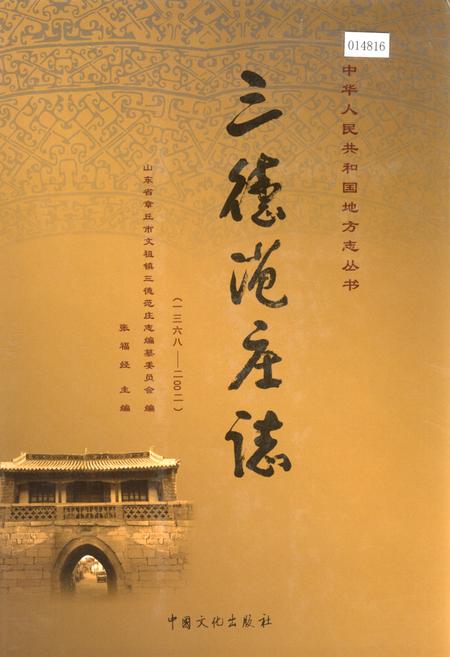 014816
中华人民共和国地方志丛书
三德范庄誌
(一三六八——二〇〇二)
山东省章丘市文祖镇三德范庄志编纂委员会 编
张福经 主编
中国文化出版社